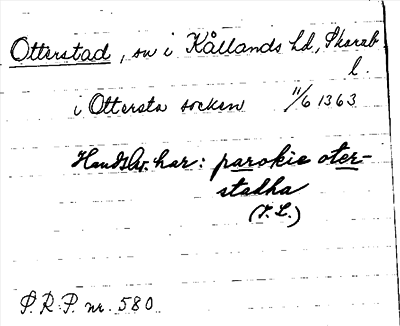 Otterstad, sn i Kållands hd, Skarab.
l.
i Ottersta socken 11/6 1363
Handskr. har: parokie oter-
stadha
(I.L.)
P.R.P. nr. 580.